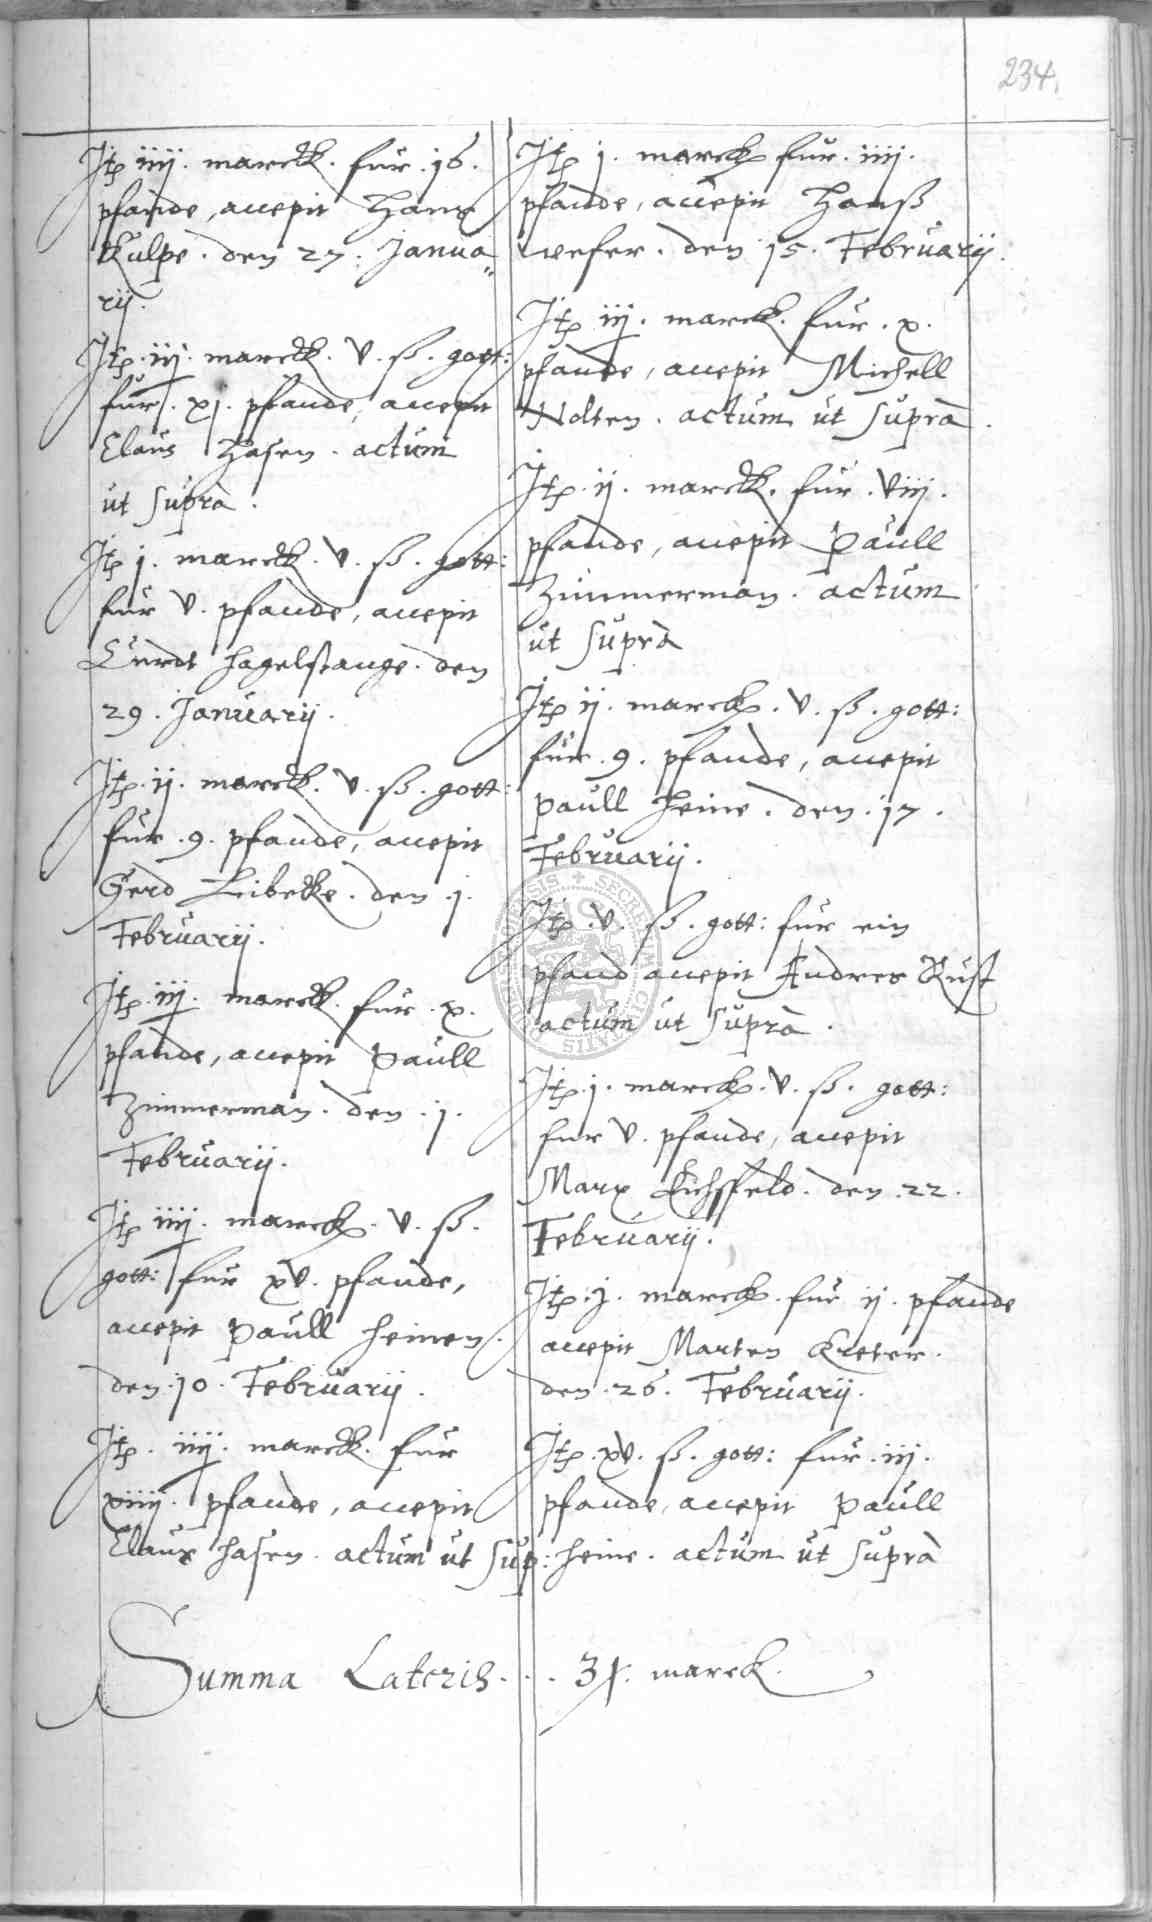 234.
Itp iiij. marck. fur .16.
pfande, accepit Hans
Kulpe. den 27. Janua„
rij.
Itp. iij. marck. v. ß. gott:
fur. xj. pfande, accepit
Claus Hasen. actum
ut supra.
Itp j. marck. v. ß. gott:
fur v. pfande, accepit
Curdt Hagelstange. den
29. Januarij.
Itp. ij. marck. v. ß. gott:
fur .9. pfande, accepit
Gerd Libecke. den .1.
Februarij.
Itp. iij. marck. fur .x.
pfande, accepit Paull
Zimmerman. den .1.
Februarij.
Itp iiij. marck. v. ß.
gott: fur xv. pfande,
accepit Paull Heinen.
den .10. Februarij.
Itp. iiij. marck. fur
xiiij. pfande, accepit
Claus Hasen. actum ut sup:
Itp j. marck fur. iiij.
pfande, accepit Hanß
den 15. Februarij.
Itp iij. marck. fur. x.
pfande, accepit Michell
Nolten. actum ut supra.
Itp. ij. marck. fur. viij.
pfande, accepit Paull
Zimmerman. actum
ut supra
Itp ij. marck. v. ß. gott:
fur .9. pfande, accepit
Paull Heine. den .17.
Februarij.
Itp. v. ß. gott: fur ein
pfand accepit Andres Rust
actum ut supra.
Itp. j. marck. v. ß. gott:
fur v. pfande, accepit
Marx Eichsfeld. den .22.
Februarij.
Itp. j. marck. fur ij. pfande
accepit Marten Kreter.
den .26. Februarij.
Itp. xv. ß. gott: fur. iij.
pfande, accepit Paull
Heine. actum ut supra
Summa Lateris . . . 31. marck.
SECRETUM CIVITATIS